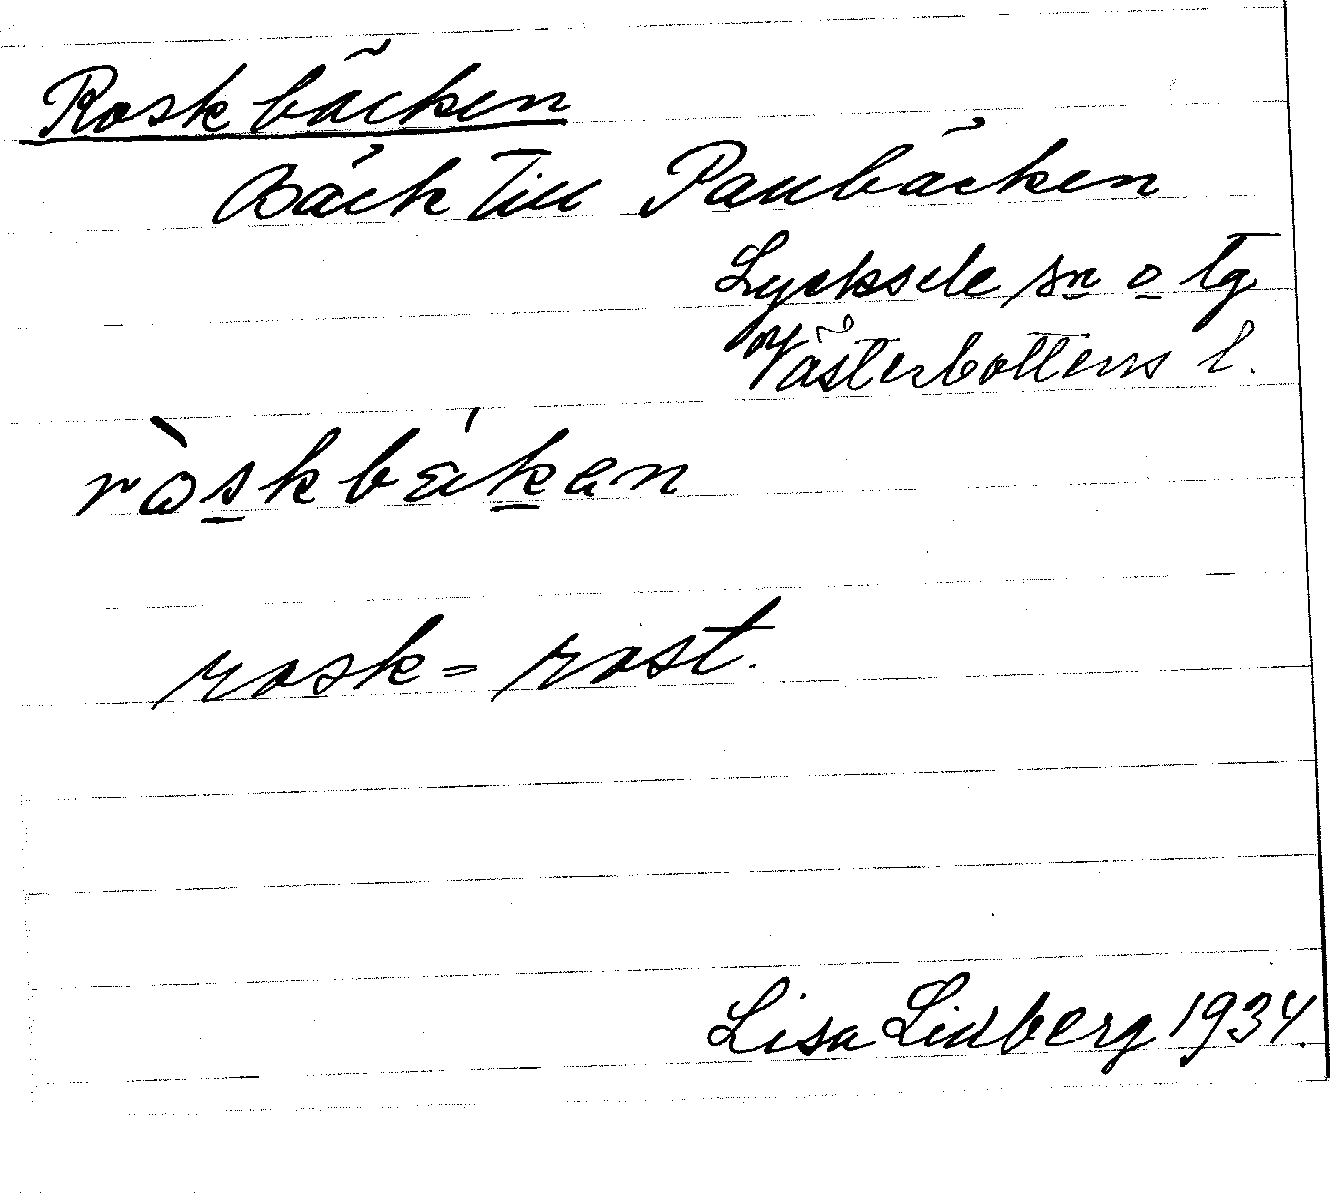 Roskbäcken
Bäck till Paubäcken
Lycksele sn o tg
Västerbottens l.
ròskbäkan
rosk = rost.
Lisa Lidberg 1934.